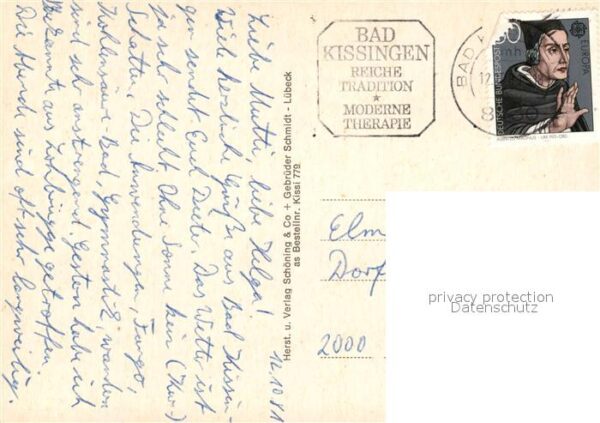 12.10.81
Liebe Mutti, liebe Helga!
Viele herzliche Grüße aus Bad Kissin-
gen sendet Euch Dieter. Das Wetter ist
ja sehr schlecht. Ohne Sonne kein (Kur-)
Schatten. Die Anwendungen, Fango,
Kohlensäure-Bad, Gymnastik, wandern
sind sehr anstrengend. Gestern habe ich
Bekannte aus getroffen.
Die Abende sind oft sehr langweilig.
Herst. u. Verlag Schöning & Co + Gebrüder Schmidt - Lübeck
as Bestellnr. Kissi 779
BAD
KISSINGEN
REICHE
TRADITION
★
MODERNE
THERAPIE
BAD
12.
8
DEUTSCHE BUNDESPOST
EUROPA
Elm
Dorf
2000
privacy protection
Datenschutz